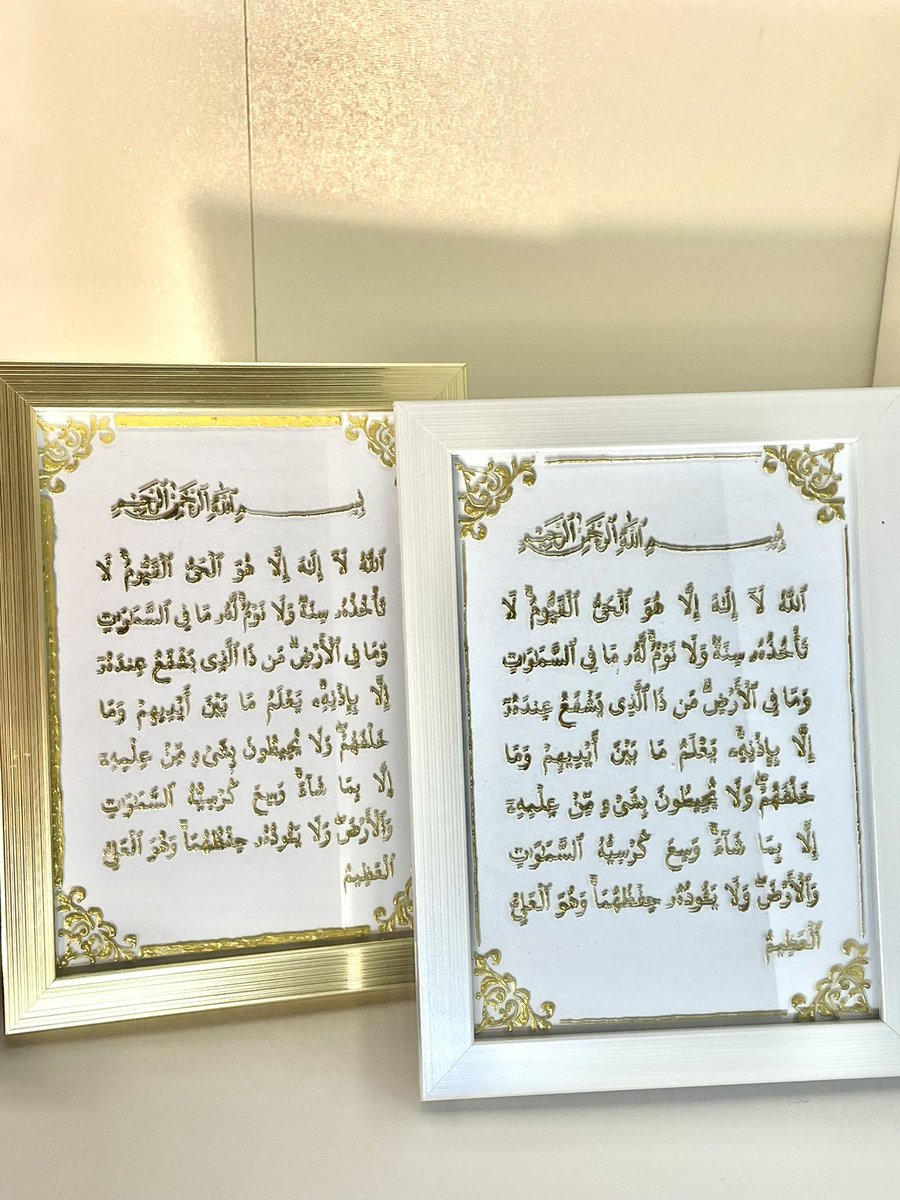 بِسْمِ اللَّهِ الرَّحْمَٰنِ الرَّحِيمِ
ٱللَّهُ لَآ إِلَٰهَ إِلَّا هُوَ ٱلْحَىُّ ٱلْقَيُّومُ ۚ لَا
تَأْخُذُهُۥ سِنَةٌ وَلَا نَوْمٌ ۚ لَّهُۥ مَا فِى ٱلسَّمَٰوَٰتِ
وَمَا فِى ٱلْأَرْضِ ۗ مَن ذَا ٱلَّذِى يَشْفَعُ عِندَهُۥٓ
إِلَّا بِإِذْنِهِۦ ۚ يَعْلَمُ مَا بَيْنَ أَيْدِيهِمْ وَمَا
خَلْفَهُمْ ۖ وَلَا يُحِيطُونَ بِشَىْءٍ مِّنْ عِلْمِهِۦٓ
إِلَّا بِمَا شَآءَ ۚ وَسِعَ كُرْسِيُّهُ ٱلسَّمَٰوَٰتِ
وَٱلْأَرْضَ ۖ وَلَا يَـُٔودُهُۥ حِفْظُهُمَا ۚ وَهُوَ ٱلْعَلِىُّ
ٱلْعَظِيمُ
بِسْمِ اللَّهِ الرَّحْمَٰنِ الرَّحِيمِ
ٱللَّهُ لَآ إِلَٰهَ إِلَّا هُوَ ٱلْحَىُّ ٱلْقَيُّومُ ۚ لَا
تَأْخُذُهُۥ سِنَةٌ وَلَا نَوْمٌ ۚ لَّهُۥ مَا فِى ٱلسَّمَٰوَٰتِ
وَمَا فِى ٱلْأَرْضِ ۗ مَن ذَا ٱلَّذِى يَشْفَعُ عِندَهُۥٓ
إِلَّا بِإِذْنِهِۦ ۚ يَعْلَمُ مَا بَيْنَ أَيْدِيهِمْ وَمَا
خَلْفَهُمْ ۖ وَلَا يُحِيطُونَ بِشَىْءٍ مِّنْ عِلْمِهِۦٓ
إِلَّا بِمَا شَآءَ ۚ وَسِعَ كُرْسِيُّهُ ٱلسَّمَٰوَٰتِ
وَٱلْأَرْضَ ۖ وَلَا يَـُٔودُهُۥ حِفْظُهُمَا ۚ وَهُوَ ٱلْعَلِىُّ
ٱلْعَظِيمُ